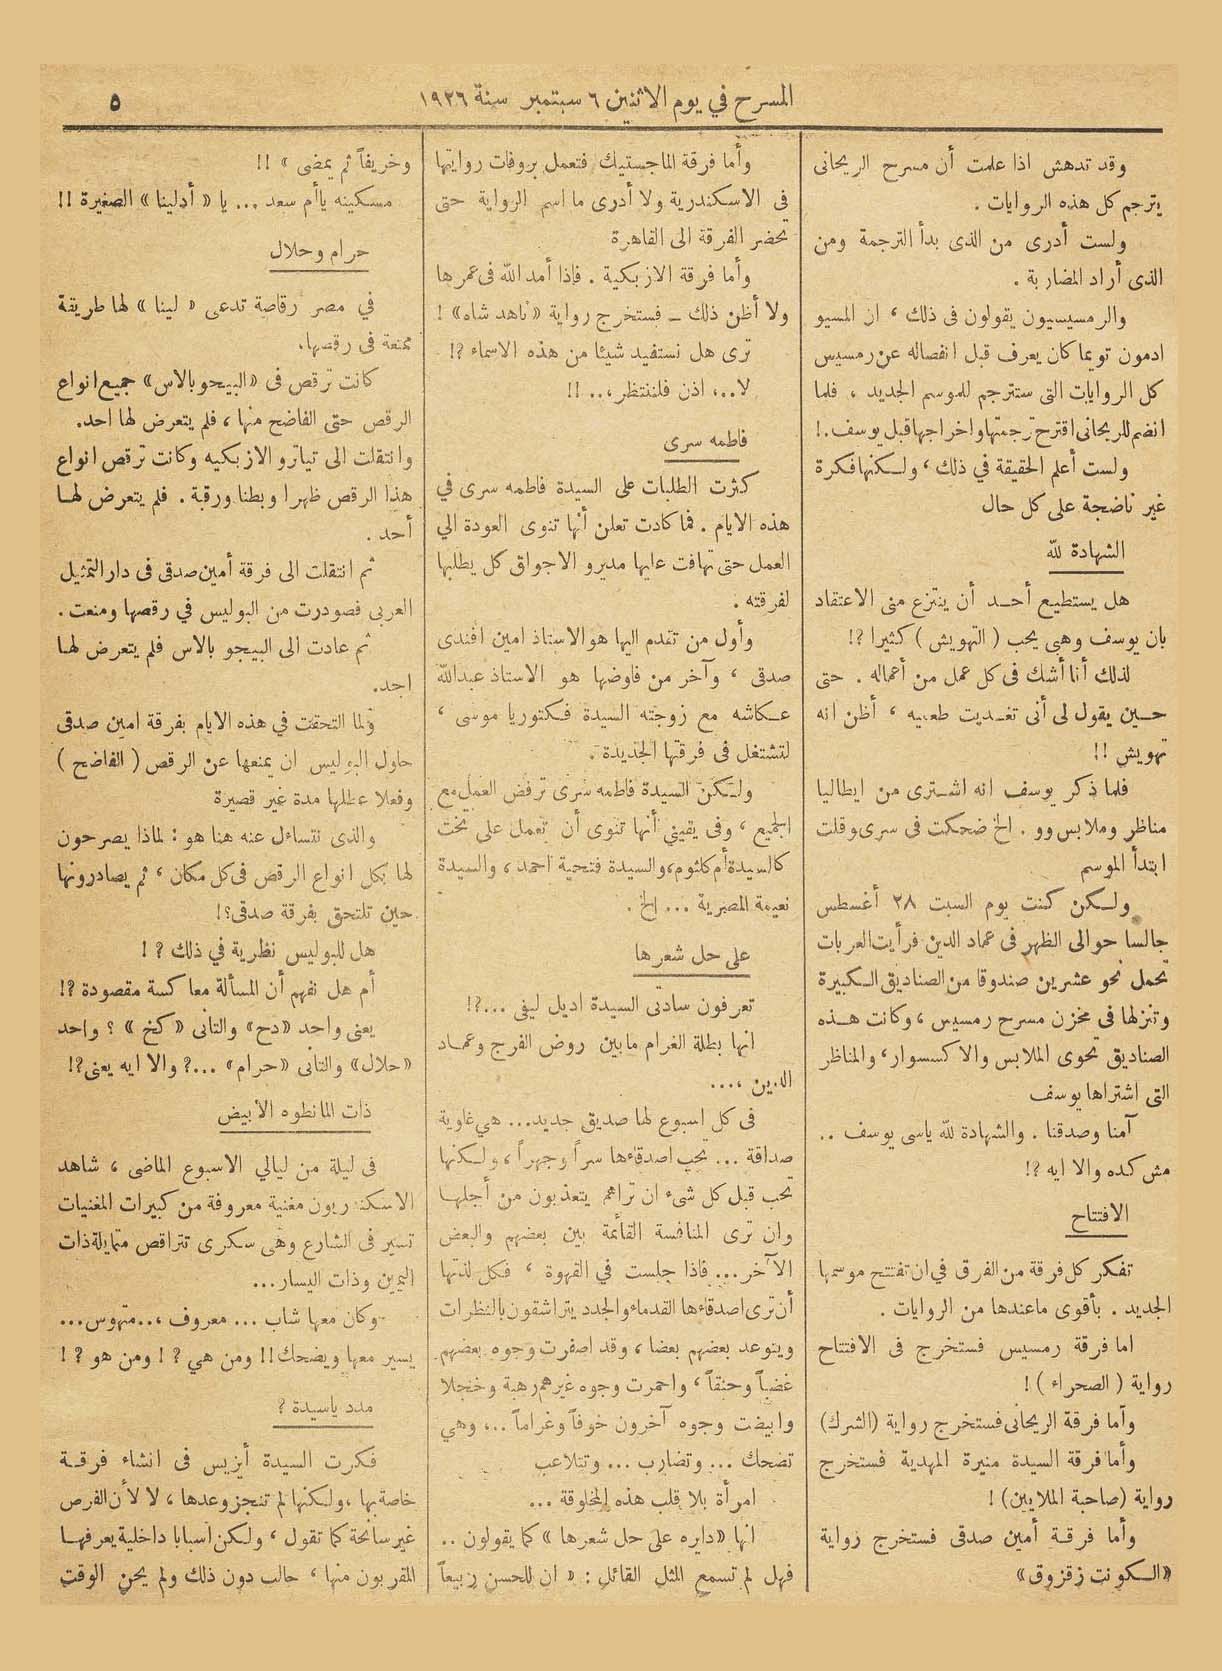 المسرح في يوم الاثنين ٦ سبتمبر سنة ١٩٢٦
٥
وقد تدهش اذا علمت أن مسرح الريحانى
يترجم كل هذه الروايات .
ولست أدرى من الذى بدأ الترجمة ومن
الذى أراد المضاربة .
والرمسيسيون يقولون فى ذلك ، ان المسيو
ادمون تويما كان يعرف قبل انفصاله عن رمسيس
كل الروايات التى ستترجم للموسم الجديد ، فلما
انضم للريحانى اقترح ترجمتها واخراجها قبل يوسف.!
ولست أعلم الحقيقة في ذلك ، ولكنها فكرة
غير ناضجة على كل حال
الشهادة لله
هل يستطيع أحد أن ينتزع منى الاعتقاد
بان يوسف وهبى يحب ( التهويش ) كثيرا ?!
لذلك أنا أشك فى كل عمل من أعماله . حتى
حين يقول لى أنى تغديت طعميه ، أظن انه
تهويش !!
فلما ذكر يوسف انه اشترى من ايطاليا
مناظر وملابس وو . الخ ضحكت فى سرى وقلت
ابتدأ الموسم
ولكن كنت يوم السبت ٢٨ أغسطس
جالسا حوالى الظهر فى عماد الدين فرأيت العربات
تحمل نحو عشرين صندوقا من الصناديق الكبيرة
وتنزلها فى مخزن مسرح رمسيس ، وكانت هذه
الصناديق تحوى الملابس والاكسسوار ، والمناظر
التى اشتراها يوسف
آمنا وصدقنا . والشهادة لله ياسى يوسف ..
مش كده والا ايه ?!
الافتتاح
تفكر كل فرقة من الفرق في ان تفتتح موسمها
الجديد . بأقوى ماعندها من الروايات .
اما فرقة رمسيس فستخرج فى الافتتاح
رواية ( الصحراء ) !
وأما فرقة الريحانى فستخرج رواية (الشرك)
وأما فرقة السيدة منيرة المهدية فستخرج
رواية (صاحبة الملايين) !
وأما فرقة أمين صدقى فستخرج رواية
«الكونت زقزوق»
وأما فرقة الماجستيك فتعمل بروفات روايتها
فى الاسكندرية ولا أدرى ما اسم الرواية حتى
تحضر الفرقة الى القاهرة
وأما فرقة الازبكية . فاذا أمد الله فى عمرها
ولا أظن ذلك ــ فستخرج رواية «ناهد شاه» !
ترى هل نستفيد شيئا من هذه الاسماء ?!
لا..، اذن فلننتظر،.. !!
فاطمه سرى
كثرت الطلبات على السيدة فاطمه سرى في
هذه الايام . فما كادت تعلن أنها تنوى العودة الي
العمل حتى تهافت عليها مديرو الاجواق كل يطلبها
لفرقته .
وأول من تقدم اليها هو الاستاذ امين افندى
صدقى ، وآخر من فاوضها هو الاستاذ عبدالله
عكاشه مع زوجته السيدة فكتوريا موسى ،
لتشتغل فى فرقتها الجديدة .
ولكن السيدة فاطمه سرى ترفض العمل مع
الجميع ، وفى يقيني أنها تنوى أن تعمل على تخت
كالسيدة أم كلثوم، والسيدة فتحية احمد ، والسيدة
نعيمة المصرية ... الخ .
على حل شعرها
تعرفون سادتى السيدة اديل ليفى ...?!
انها بطلة الغرام مابين روض الفرج وعماد
الدين ،...
فى كل اسبوع لها صديق جديد... هي غاوية
صداقة ... تحب اصدقاءها سراً وجهراً ، ولكنها
تحب قبل كل شىء ان تراهم يتعذبون من أجلها
وان ترى المنافسة القائمة بين بعضهم والبعض
الآخر... فاذا جلست في القهوة ، فكل لذتها
أن ترى اصدقاءها القدماء والجدد يتراشقون بالنظرات
ويتوعد بعضهم بعضا ، وقد اصفرت وجوه بعضهم
غضباً وحنقاً ، واحمرت وجوه غيرهم رهبة وخجلا
وابيضت وجوه آخرون خوفاً وغراماً ..، وهي
تضحك ... وتضارب ... وتتلاعب
امرأة بلا قلب هذه المخلوقة ...
انها «دايره على حل شعرها » كما يقولون ..
فهل لم تسمع المثل القائل : « ان للحسن ربيعاً
وخريفاً ثم يمضى » !!
مسكينه ياأم سعد ... يا « أدلينا » الصغيرة !!
حرام وحلال
في مصر رقاصة تدعى « لينا » لها طريقة
ممتعة فى رقصها.
كانت ترقص فى «البيجو بالاس» جميع انواع
الرقص حتى الفاضح منها ، فلم يتعرض لها احد.
وانتقلت الى تياترو الازبكيه وكانت ترقص انواع
هذا الرقص ظهرا وبطنا ورقبة . فلم يتعرض لها
أحد .
ثم انتقلت الى فرقة أمين صدقى فى دار التمثيل
العربى فصودرت من البوليس في رقصها ومنعت .
ثم عادت الى البيجو بالاس فلم يتعرض لها
احد.
ولما التحقت في هذه الايام بفرقة امين صدقى
حاول البوليس ان يمنعها عن الرقص ( الفاضح )
وفعلا عطلها مدة غير قصيرة
والذى نتساءل عنه هنا هو : لماذا يصرحون
لها بكل انواع الرقص فى كل مكان ، ثم يصادرونها
حين تلتحق بفرقة صدقى؟!
هل للبوليس نظرية في ذلك ? !
أم هل نفهم أن المسألة معاكسة مقصودة ?!
يعنى واحد «دح» والتانى «كخ » ؟ واحد
«حلال» والتانى «حرام» ...? والا ايه يعنى?!
ذات المانطوه الأبيض
فى ليلة من ليالي الاسبوع الماضى ، شاهد
الاسكندريون مغنية معروفة من كبيرات المغنيات
تسير فى الشارع وهى سكرى تتراقص متمايلة ذات
اليمين وذات اليسار...
وكان معها شاب ... معروف ،..متهوس...
يسير معها ويضحك !! ومن هي ? ! ومن هو ? !
مدد ياسيدة ?
فكرت السيدة أيزيس فى انشاء فرقة
خاصة بها ،ولكنها لم تنجز وعدها ، لا لأن الفرص
غير سانحة كما تقول ، ولكن أسبابا داخلية يعرفها
المقربون منها ، حالت دون ذلك ولم يحن الوقت